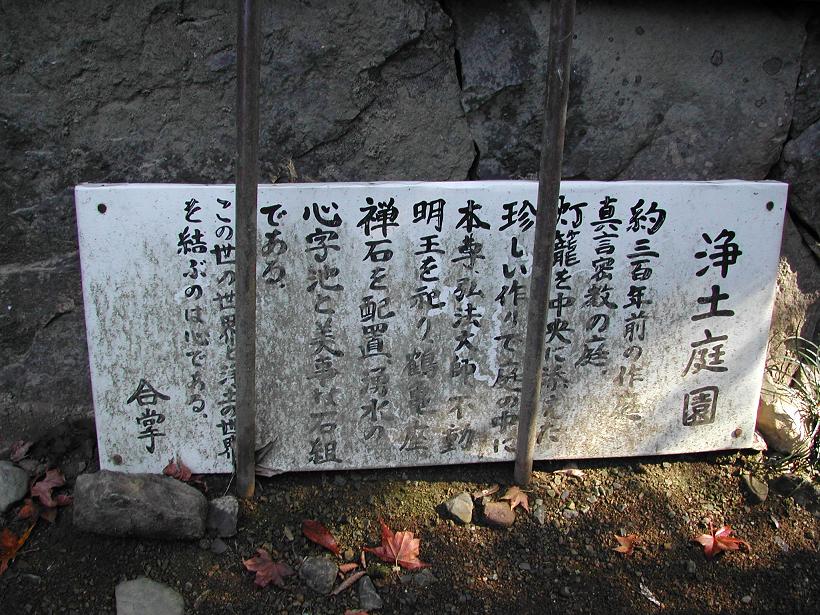 浄土庭園
約三百年前の作庭
真言密教の庭、
灯籠を中央に添えた
珍しい作りで庭の中に
本尊、弘法大師、不動
明王を祀り、鶴亀座
禅石を配置、湧水の
心字池と美事な石組
である。
この世の世界と浄土の世界
を結ぶのは心である。
合掌